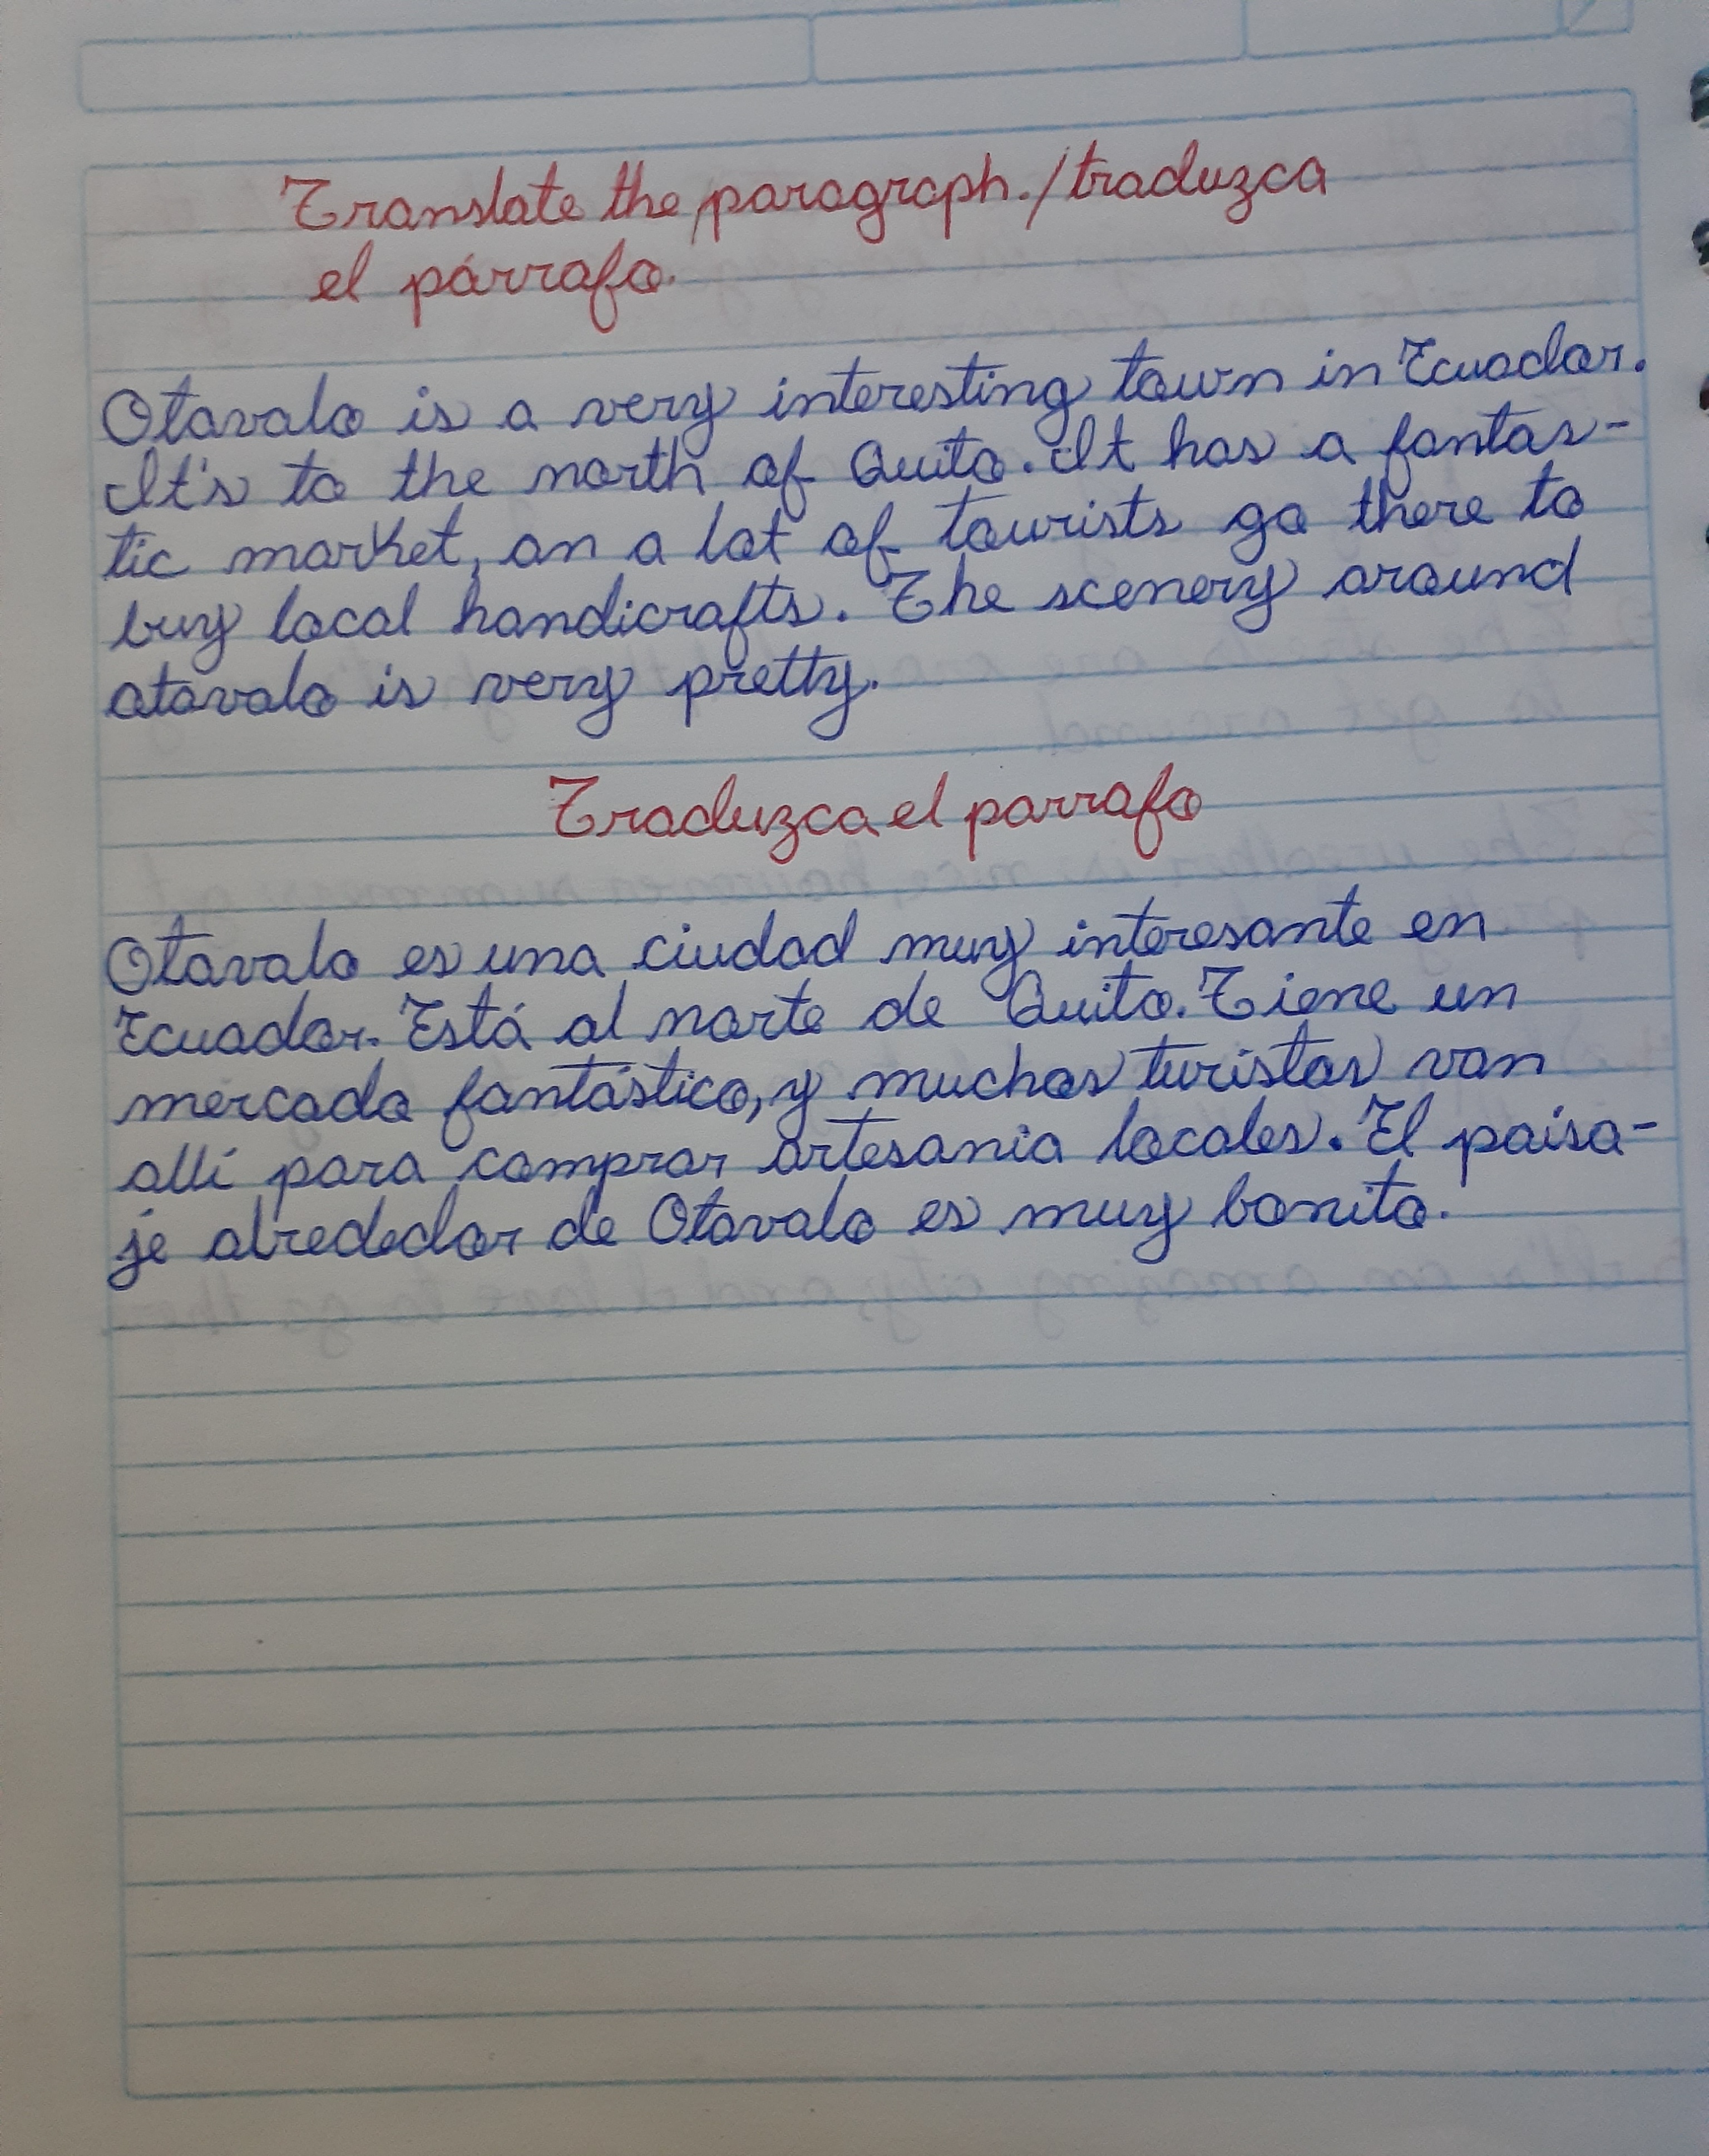 Translate the paragraph./traduzca
el párrafo.
Otavalo is a very interesting town in Ecuador.
It's to the north of Quito. It has a fantas-
tic market, an a lot of tourists go there to
buy local handicrafts. The scenery around
otavalo is very pretty.
Traduzca el parrafo
Otavalo es una ciudad muy interesante en
Ecuador. Está al norte de Quito. Tiene un
mercado fantástico, y muchos turistas van
allí para comprar artesania locales. El paisa-
je alrededor de Otavalo es muy bonito.